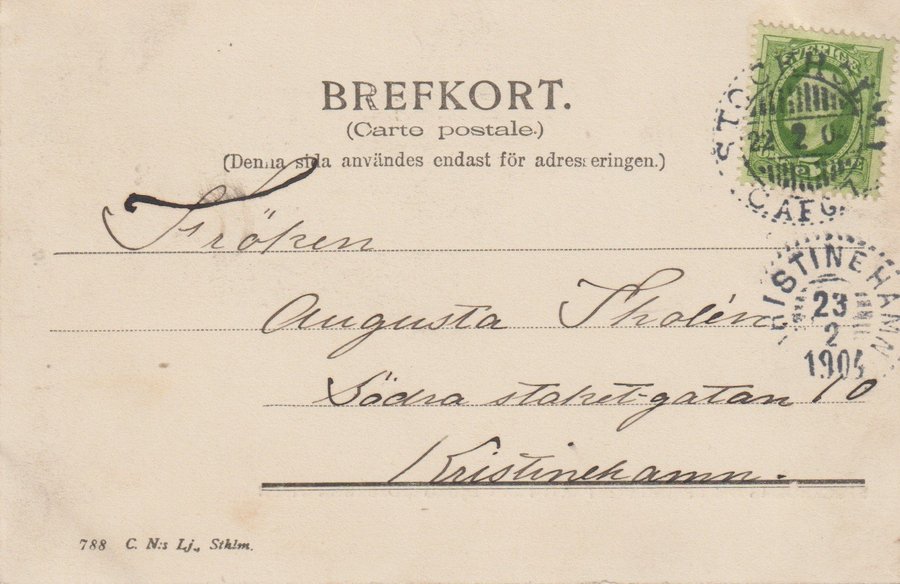 BREFKORT.
(Carte postale.)
(Denna sida användes endast för adresseringen.)
SVERIGE
STOCKHOLM
22 2
C.AFG.
Fröken
Augusta Tholén
KRISTINEHAMN
23
2
1904
Södra staket-gatan 10
Kristinehamn.
788 C. N:s Lj., Sthlm.